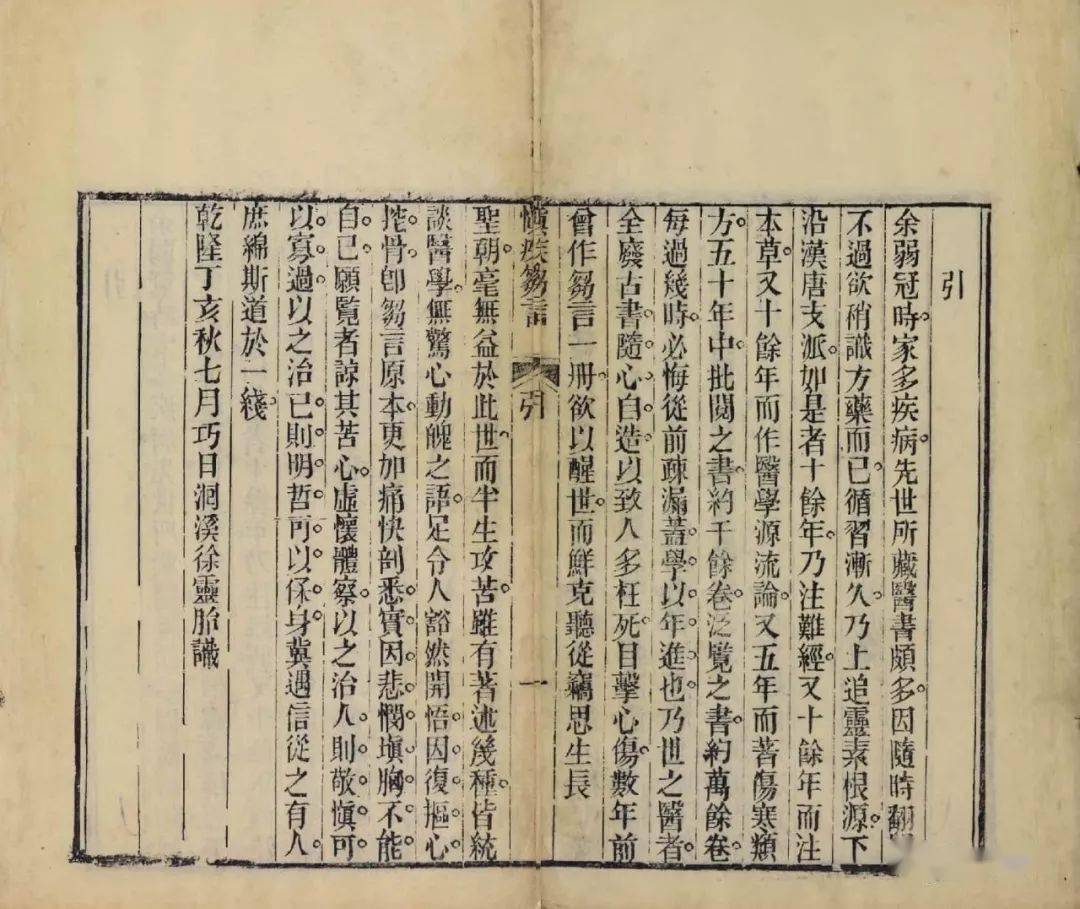 引
余弱冠時家多疾病。先世所藏醫書頗多。因隨時翻
不過欲稍識方藥而已。循習漸久。乃上追靈素根源。下
沿漢唐支派。如是者十餘年。乃注難經。又十餘年而注
本草。又十餘年而作醫學源流論。又五年而著傷寒類
方。五十年中。批閱之書約千餘卷。泛覽之書約萬餘卷。
每過幾時。必悔從前疎漏。蓋學以年進也。乃世之醫者。
全廢古書。隨心自造。以致人多枉死。目擊心傷。數年前
曾作芻言一册。欲以醒世。而鮮克聽從。竊思生長
慎疾芻言 引 一
聖朝。毫無益於此世。而半生攻苦。雖有著述幾種。皆統
談醫學。無驚心動魄之語。足令人豁然開悟。因復摳心
挖骨。卽芻言原本。更加痛快剖悉。實因悲憫塡胸。不能
自已。願覽者諒其苦心。虛懷體察。以之治人。則敬愼可
以寡過。以之治己。則明哲可以保身。冀遇信從之有人。
庶綿斯道於一綫。
乾隆丁亥秋七月巧日洄溪徐靈胎識